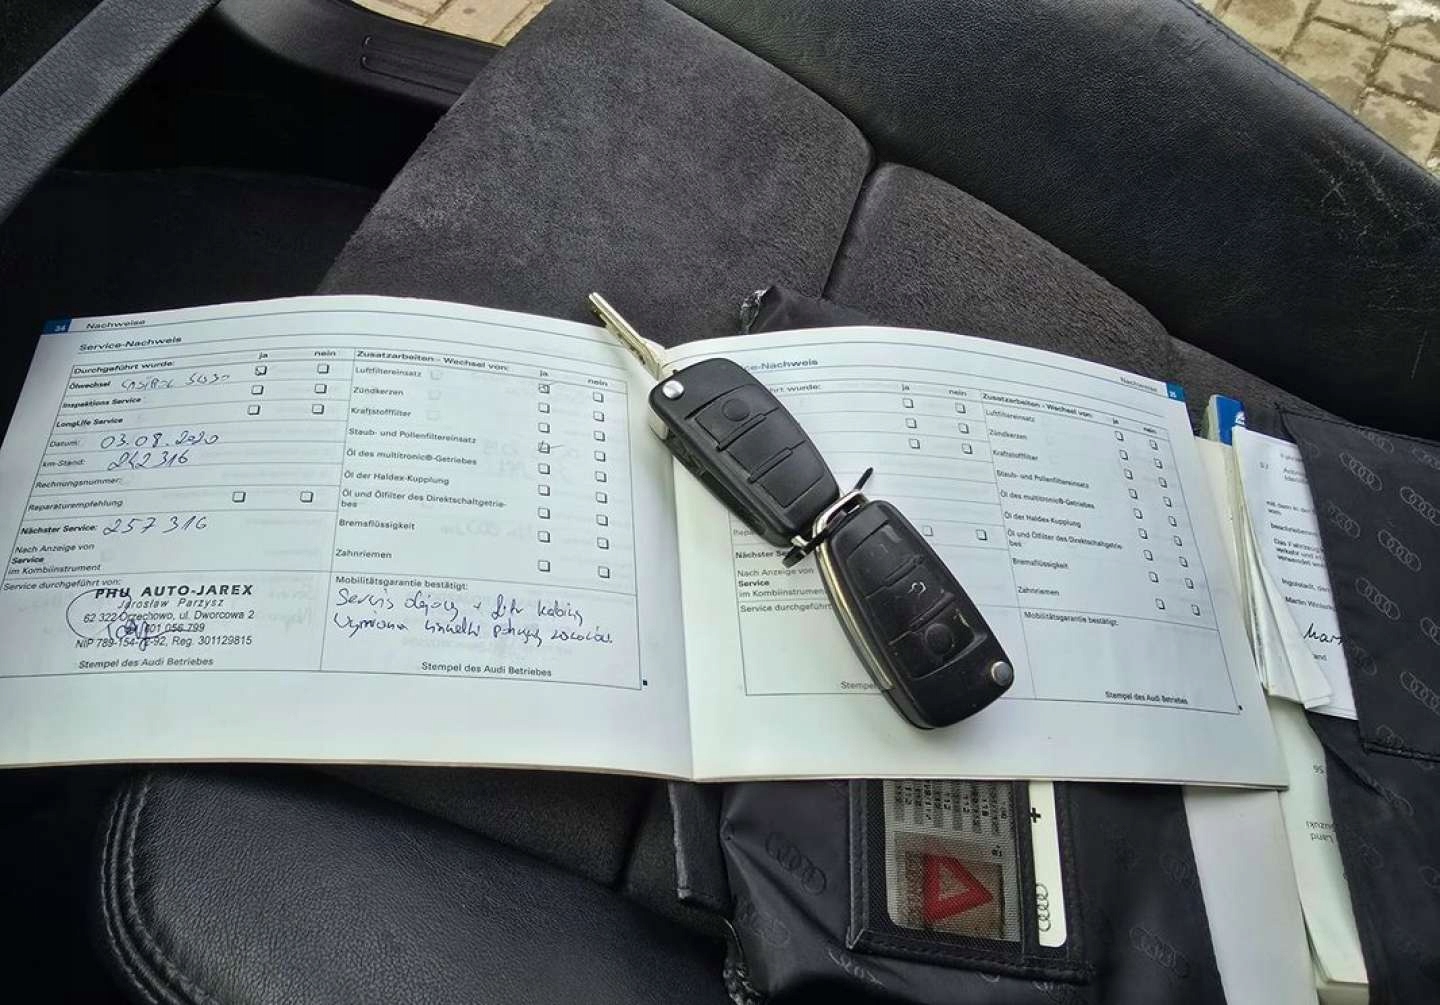 34 Nachweise
Service-Nachweis
Durchgeführt wurde: ja nein
Ölwechsel 5W30
Inspektions Service
LongLife Service
Datum: 03.08.2020
km-Stand: 242316
Rechnungsnummer:
Reparaturempfehlung
Nächster Service: 257316
Nach Anzeige von
Service
im Kombiinstrument
Service durchgeführt von:
PHU AUTO-JAREX
Jarosław Parzysz
62 322 Orzechowo, ul. Dworcowa 2
601 056 799
NIP 789-154- -92, Reg. 301129815
Stempel des Audi Betriebes
Zusatzarbeiten - Wechsel von: ja nein
Luftfiltereinsatz
Zündkerzen
Kraftstofffilter
Staub- und Pollenfiltereinsatz
Öl des multitronic®-Getriebes
Öl der Haldex-Kupplung
Öl und Ölfilter des Direktschaltgetrie-
bes
Bremsflüssigkeit
Zahnriemen
Mobilitätsgarantie bestätigt:
Serwis olejowy + filtr kabiny
wymiana
Stempel des Audi Betriebes
Nachweise 35
ce-Nachweis
hrt wurde: ja nein
Nächster Se
Nach Anzeige von
Service
im Kombiinstrument
Service durchgeführt
Stempel
Zusatzarbeiten - Wechsel von: ja nein
Luftfiltereinsatz
Zündkerzen
Kraftstofffilter
Staub- und Pollenfiltereinsatz
Öl des multitronic®-Getriebes
Öl der Haldex-Kupplung
Öl und Ölfilter des Direktschaltgetrie-
bes
Bremsflüssigkeit
Zahnriemen
Mobilitätsgarantie bestätigt:
Stempel des Audi Betriebes